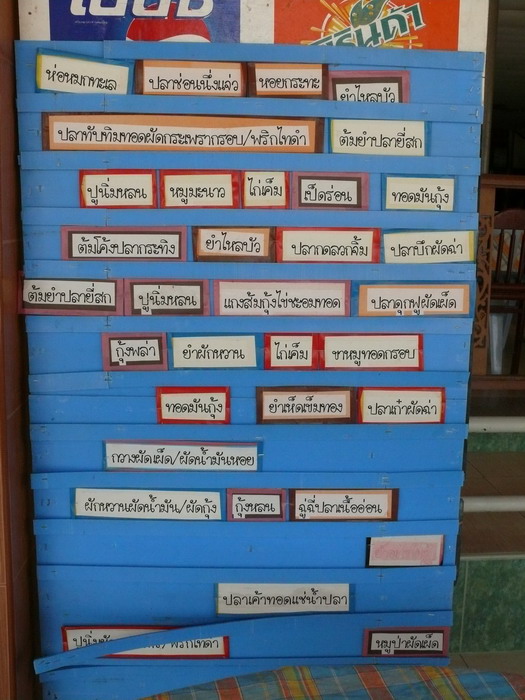 เป๊ปซี่
มิรินด้า
ห่อหมกทะเล ปลาช่อนนึ่งแจ่ว หอยกระทะ ยำไหลบัว
ปลาทับทิมทอดผัดกระเพรากรอบ/พริกไทดำ ต้มยำปลายี่สก
ปูนิ่มหลน หมูมะนาว ไก่เค็ม เป็ดร่อน ทอดมันกุ้ง
ต้มโค้งปลากระทิง ยำไหลบัว ปลากดลวกจิ้ม ปลาบึกผัดฉ่า
ต้มยำปลายี่สก ปูนิ่มหลน แกงส้มกุ้งไข่ชะอมทอด ปลาดุกฟูผัดเผ็ด
กุ้งพล่า ยำผักหวาน ไก่เค็ม ขาหมูทอดกรอบ
ทอดมันกุ้ง ยำเห็ดเข็มทอง ปลาเก๋าผัดฉ่า
กวางผัดเผ็ด/ผัดน้ำมันหอย
ผักหวานผัดน้ำมัน/ผัดกุ้ง กุ้งหลน ฉู่ฉี่ปลาเนื้ออ่อน
ปลาเค้าทอดแช่น้ำปลา
ปูนิ่มผัด พริกไทดำ หมูป่าผัดเผ็ด